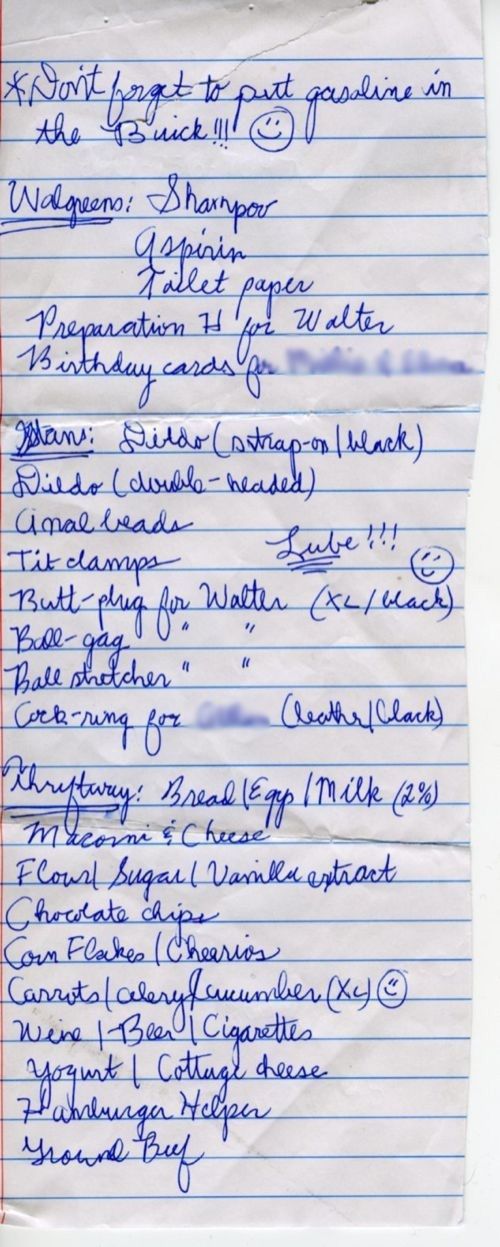 *Don't forget to put gasoline in
the Buick!!! ☺
Walgreens: Shampoo
Aspirin
Toilet paper
Preparation H for Walter
Birthday cards for
Stans: Dildo (strap-on/black)
Dildo (double-headed)
Anal beads
Tit clamps Lube!!! ☺
Butt-plug for Walter (XL/black)
Ball-gag " "
Ball stretcher " "
Cock-ring for (leather/black)
Thryftway: Bread/Eggs/Milk (2%)
Macorni & Cheese
Flour/Sugar/Vanilla extract
Chocolate chips
Corn Flakes/Cheerios
Carrots/celery/cucumber (XL) ☺
Wine/Beer/Cigarettes
Yogurt/Cottage cheese
Hamburger Helper
Ground Beef